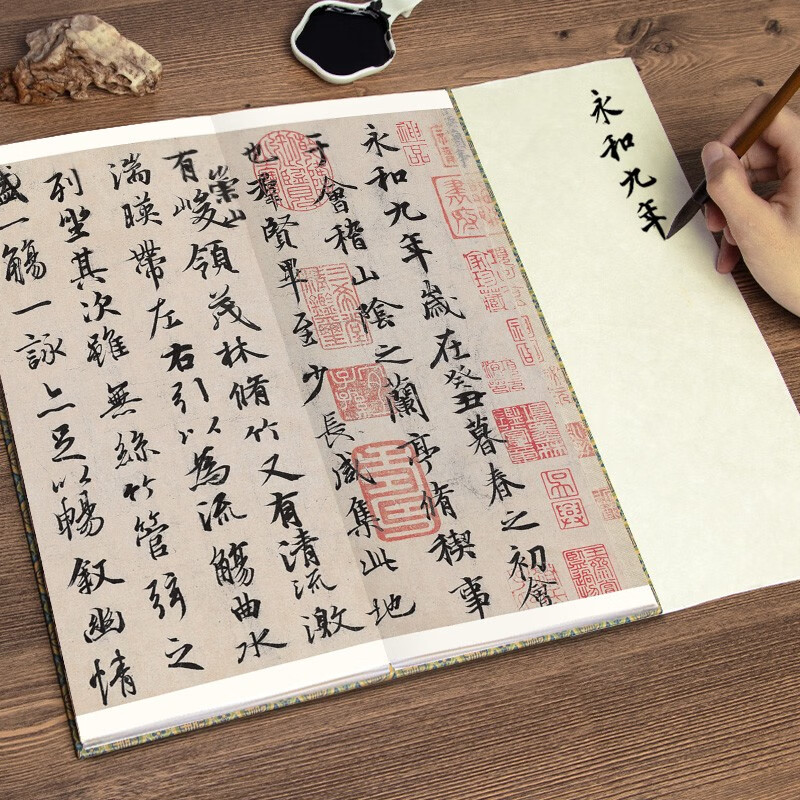 永和九年
神品
吳興
永和九年歲在癸丑暮春之初會
于會稽山陰之蘭亭脩稧事
也羣賢畢至少長咸集此地
有崇山峻領茂林脩竹又有清流激
湍暎帶左右引以為流觴曲水
列坐其次雖無絲竹管弦之
盛一觴一詠亦足以暢叙幽情